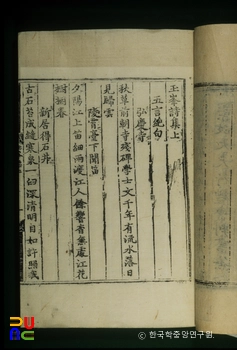 玉峯詩集上
五言絶句
弘慶寺
秋草前朝寺殘碑學士文千年有流水落日
見歸雲
陵霄臺下聞笛
夕陽江上笛細雨渡江人餘響杳無處江花
樹樹春
新居得石井
古石苔成縫寒泉一臼深清明自如許照我
© 한국학중앙연구원